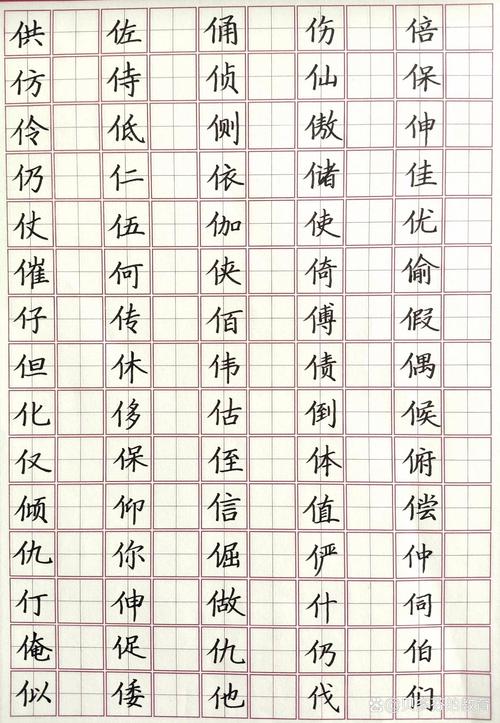 供 佐 俑 伤 倍
仿 侍 侦 仙 保
伶 低 侧 傲 伸
仍 仁 依 储 佳
仗 伍 伽 使 优
催 何 侠 倚 偷
仔 传 佰 傅 假
但 休 伟 债 偶
化 侈 估 倒 候
仅 保 侄 体 俯
倾 仰 信 值 偿
仇 你 倔 俨 仲
仃 伸 做 什 伺
俺 促 仇 仍 伯
似 倭 他 伐 们